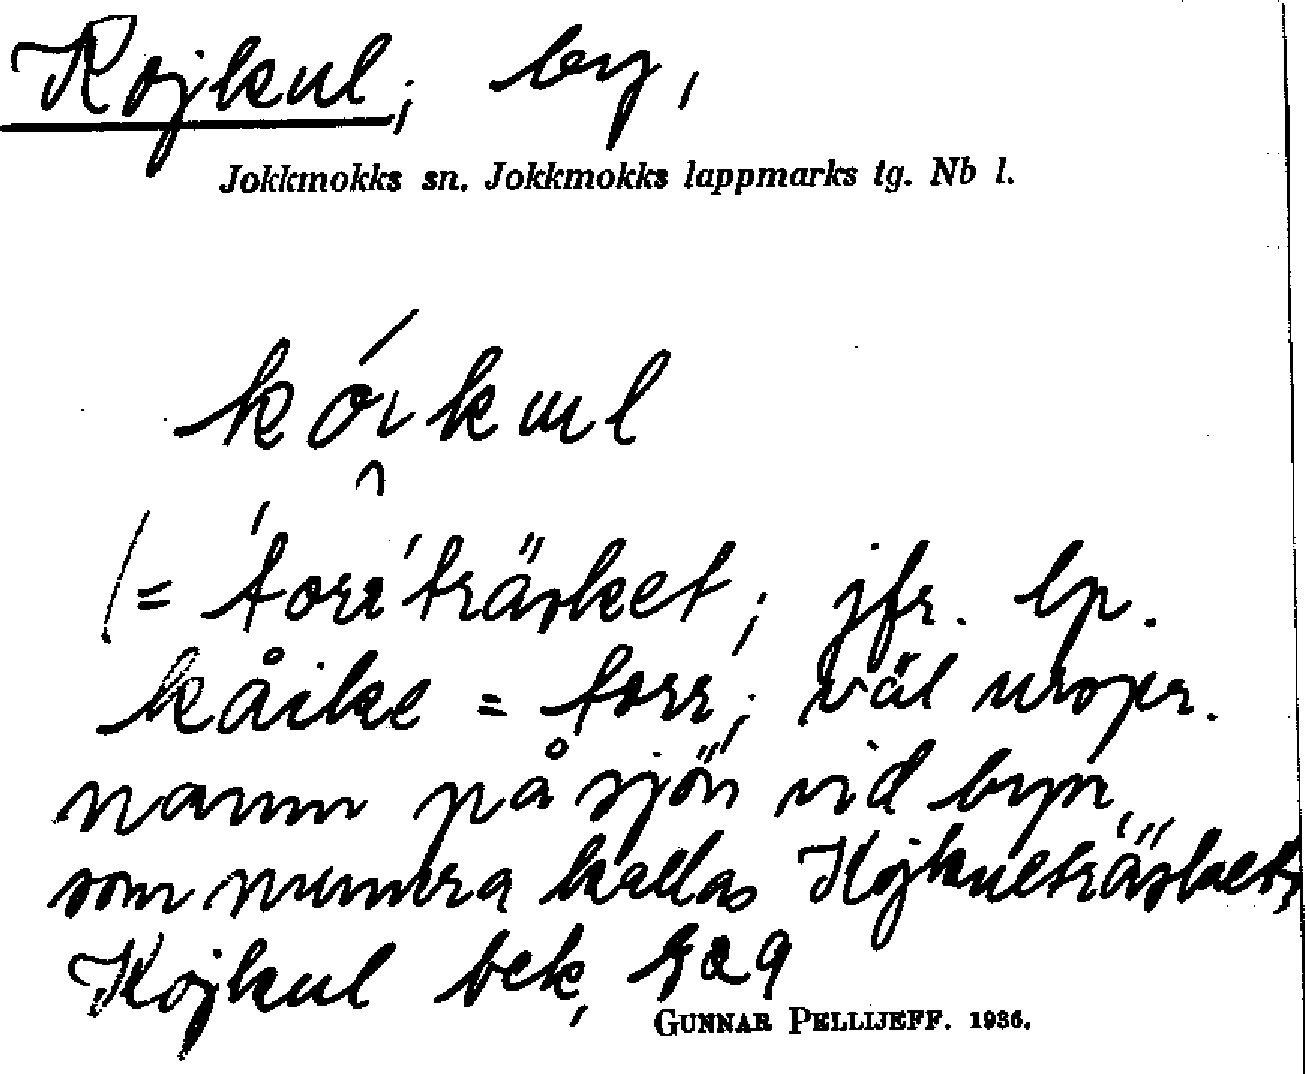 Kojkul, by,
Jokkmokks sn. Jokkmokks lappmarks tg. Nb l.
kói̯kɯl
(= 'torr'träsket'; jfr. lp.
kåike = torr; väl urspr.
namn på sjön vid byn,
som numera kallas Kojkulträsket;
Kojkul bek,
GUNNAR PELLIJEFF. 1936.